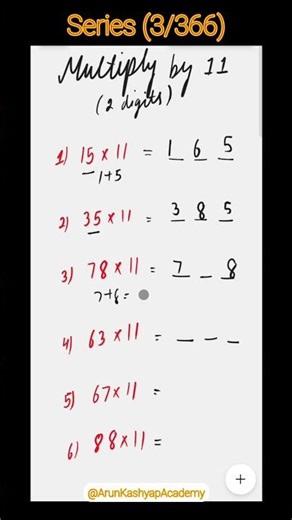 Series (3/366)
Multiply by 11
(2 digits)
1) 15 × 11 = 1 6 5
1+5
2) 35 × 11 = 3 8 5
3) 78 × 11 = 7 _ 8
7+8 =
4) 63 × 11 = _ _ _
5) 67 × 11 =
6) 88 × 11 =
+
@ArunKashyapAcademy